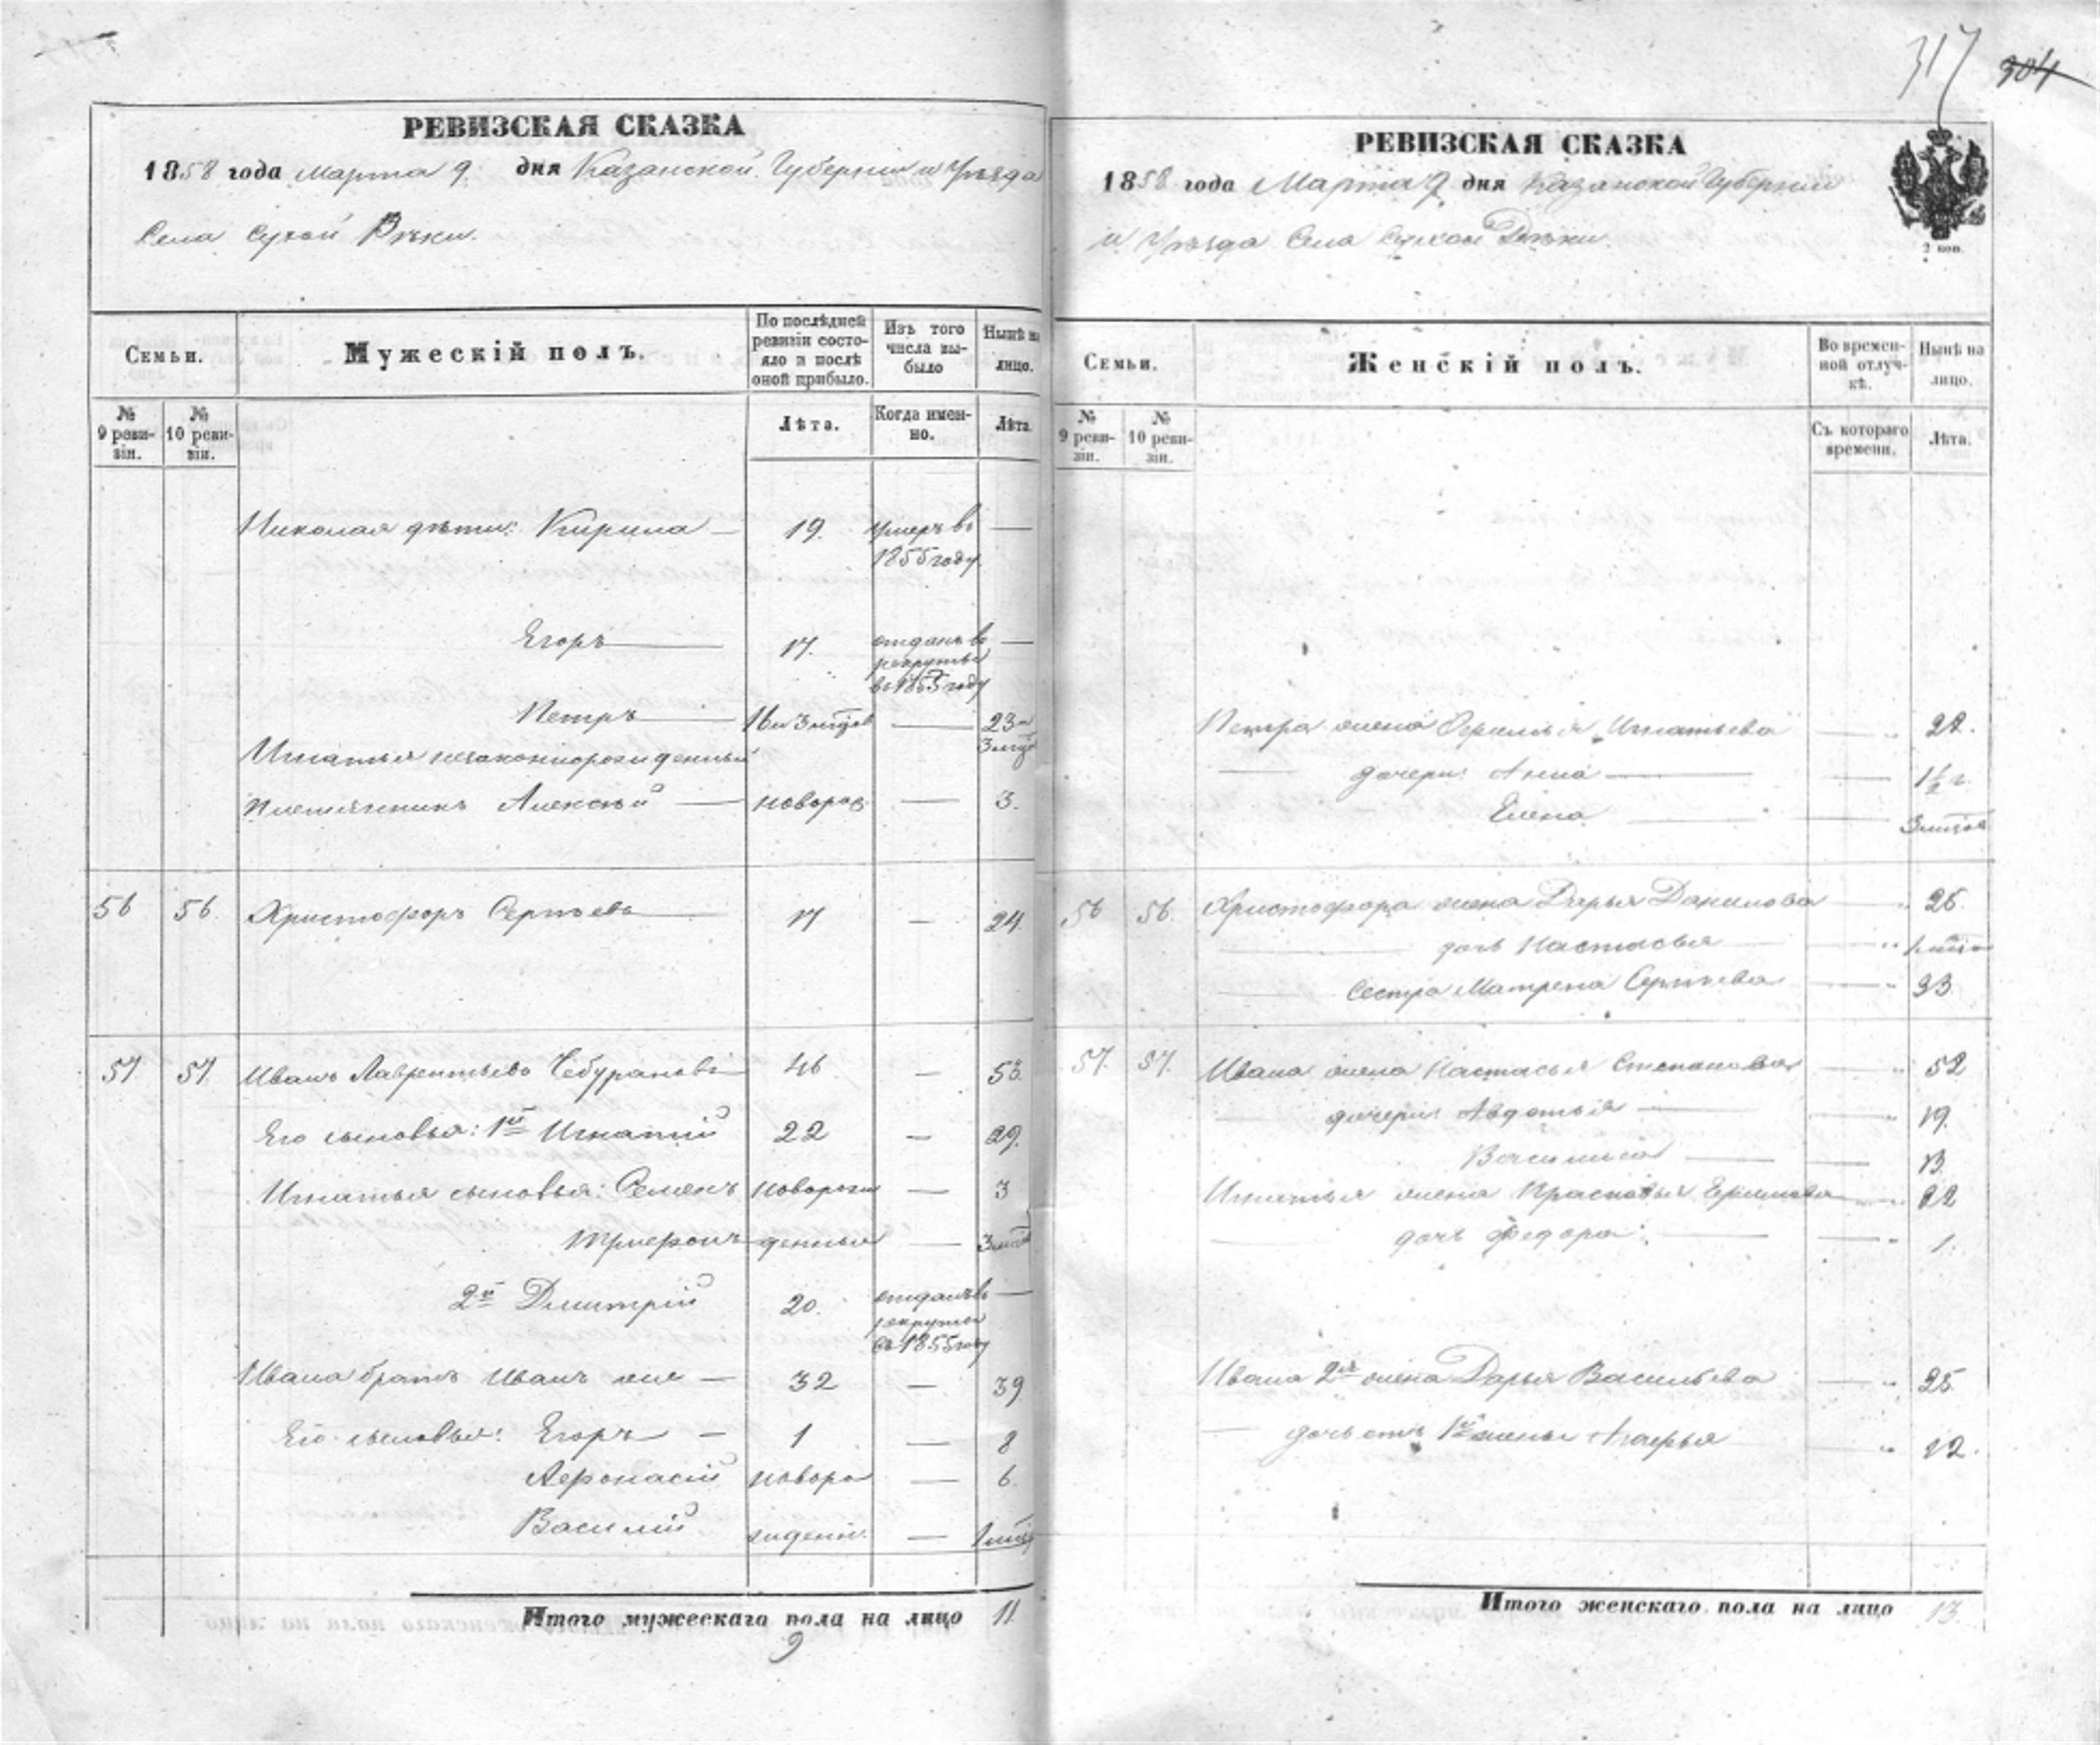 317 304
РЕВИЗСКАЯ СКАЗКА
1858 года Марта 9 дня Казанской Губерніи и Уѣзда
Села Сухой Рѣки.
Семьи.
Мужескій полъ.
По послѣдней
ревизіи состо-
яло и послѣ
оной прибыло.
Изъ того
числа вы-
было
Нынѣ на
лицо.
№
9 реви-
зіи.
№
10 реви-
зіи.
Лѣта.
Когда имен-
но.
Лѣта.
Николая дѣти: Кирила — 19. умеръ въ —
1855 году.
Егоръ — 17. отданъ въ —
рекруты
въ 1855 году
Петръ — 16 и 3 мѣсцов — 23 и
3 мѣс
Игнатья незаконнорожденный
племянникъ Алексѣй — новорож. — 3.
56 56. Христофоръ Сергѣевъ — 17 — 24.
57 57. Иванъ Лаврентьевъ Чебурановъ 46 — 53.
Его сыновья: 1й Игнатій 22 — 29.
Игнатья сыновья: Семенъ новорож — 3
Трифонъ денныя — 3 мѣс
2й Дмитрій 20. отданъ въ —
рекруты
въ 1855 году
Ивана братъ Иванъ же — 32 — 39
Его сыновья: Егоръ — 1 — 8
Афонасій новоро — 6.
Василій жденн. — 1 мѣс
Итого мужескаго пола на лицо 11
9
РЕВИЗСКАЯ СКАЗКА
1858 года Марта 9 дня Казанской Губерніи
и Уѣзда Села Сухой Рѣки.
2 коп.
Семьи.
Женскій полъ.
Во времен-
ной отлуч-
кѣ.
Нынѣ на
лицо.
№
9 реви-
зіи.
№
10 реви-
зіи.
Съ котораго
времени.
Лѣта.
Петра жена Игнатьева — „ 22.
— дочери: Анна — — 1½ г.
Елена — — 3 мѣсцов
56 56. Христофора жена Дарья Данилова — „ 26.
— дочь Настасья — — „
— сестра Матрена Сергѣева — „ 33.
57. 57. Ивана жена Настасья Степанова — „ 52
— дочери: Авдотья — — „ 19.
Василиса — — 13.
Игнатья жена Прасковья Ермилова — „ 22
— дочь Федора: — — „ 1.
Ивана 2го жена Дарья Васильева — „ 25.
— дочь отъ 1й жены Агафья „ 12.
Итого женскаго пола на лицо 13.